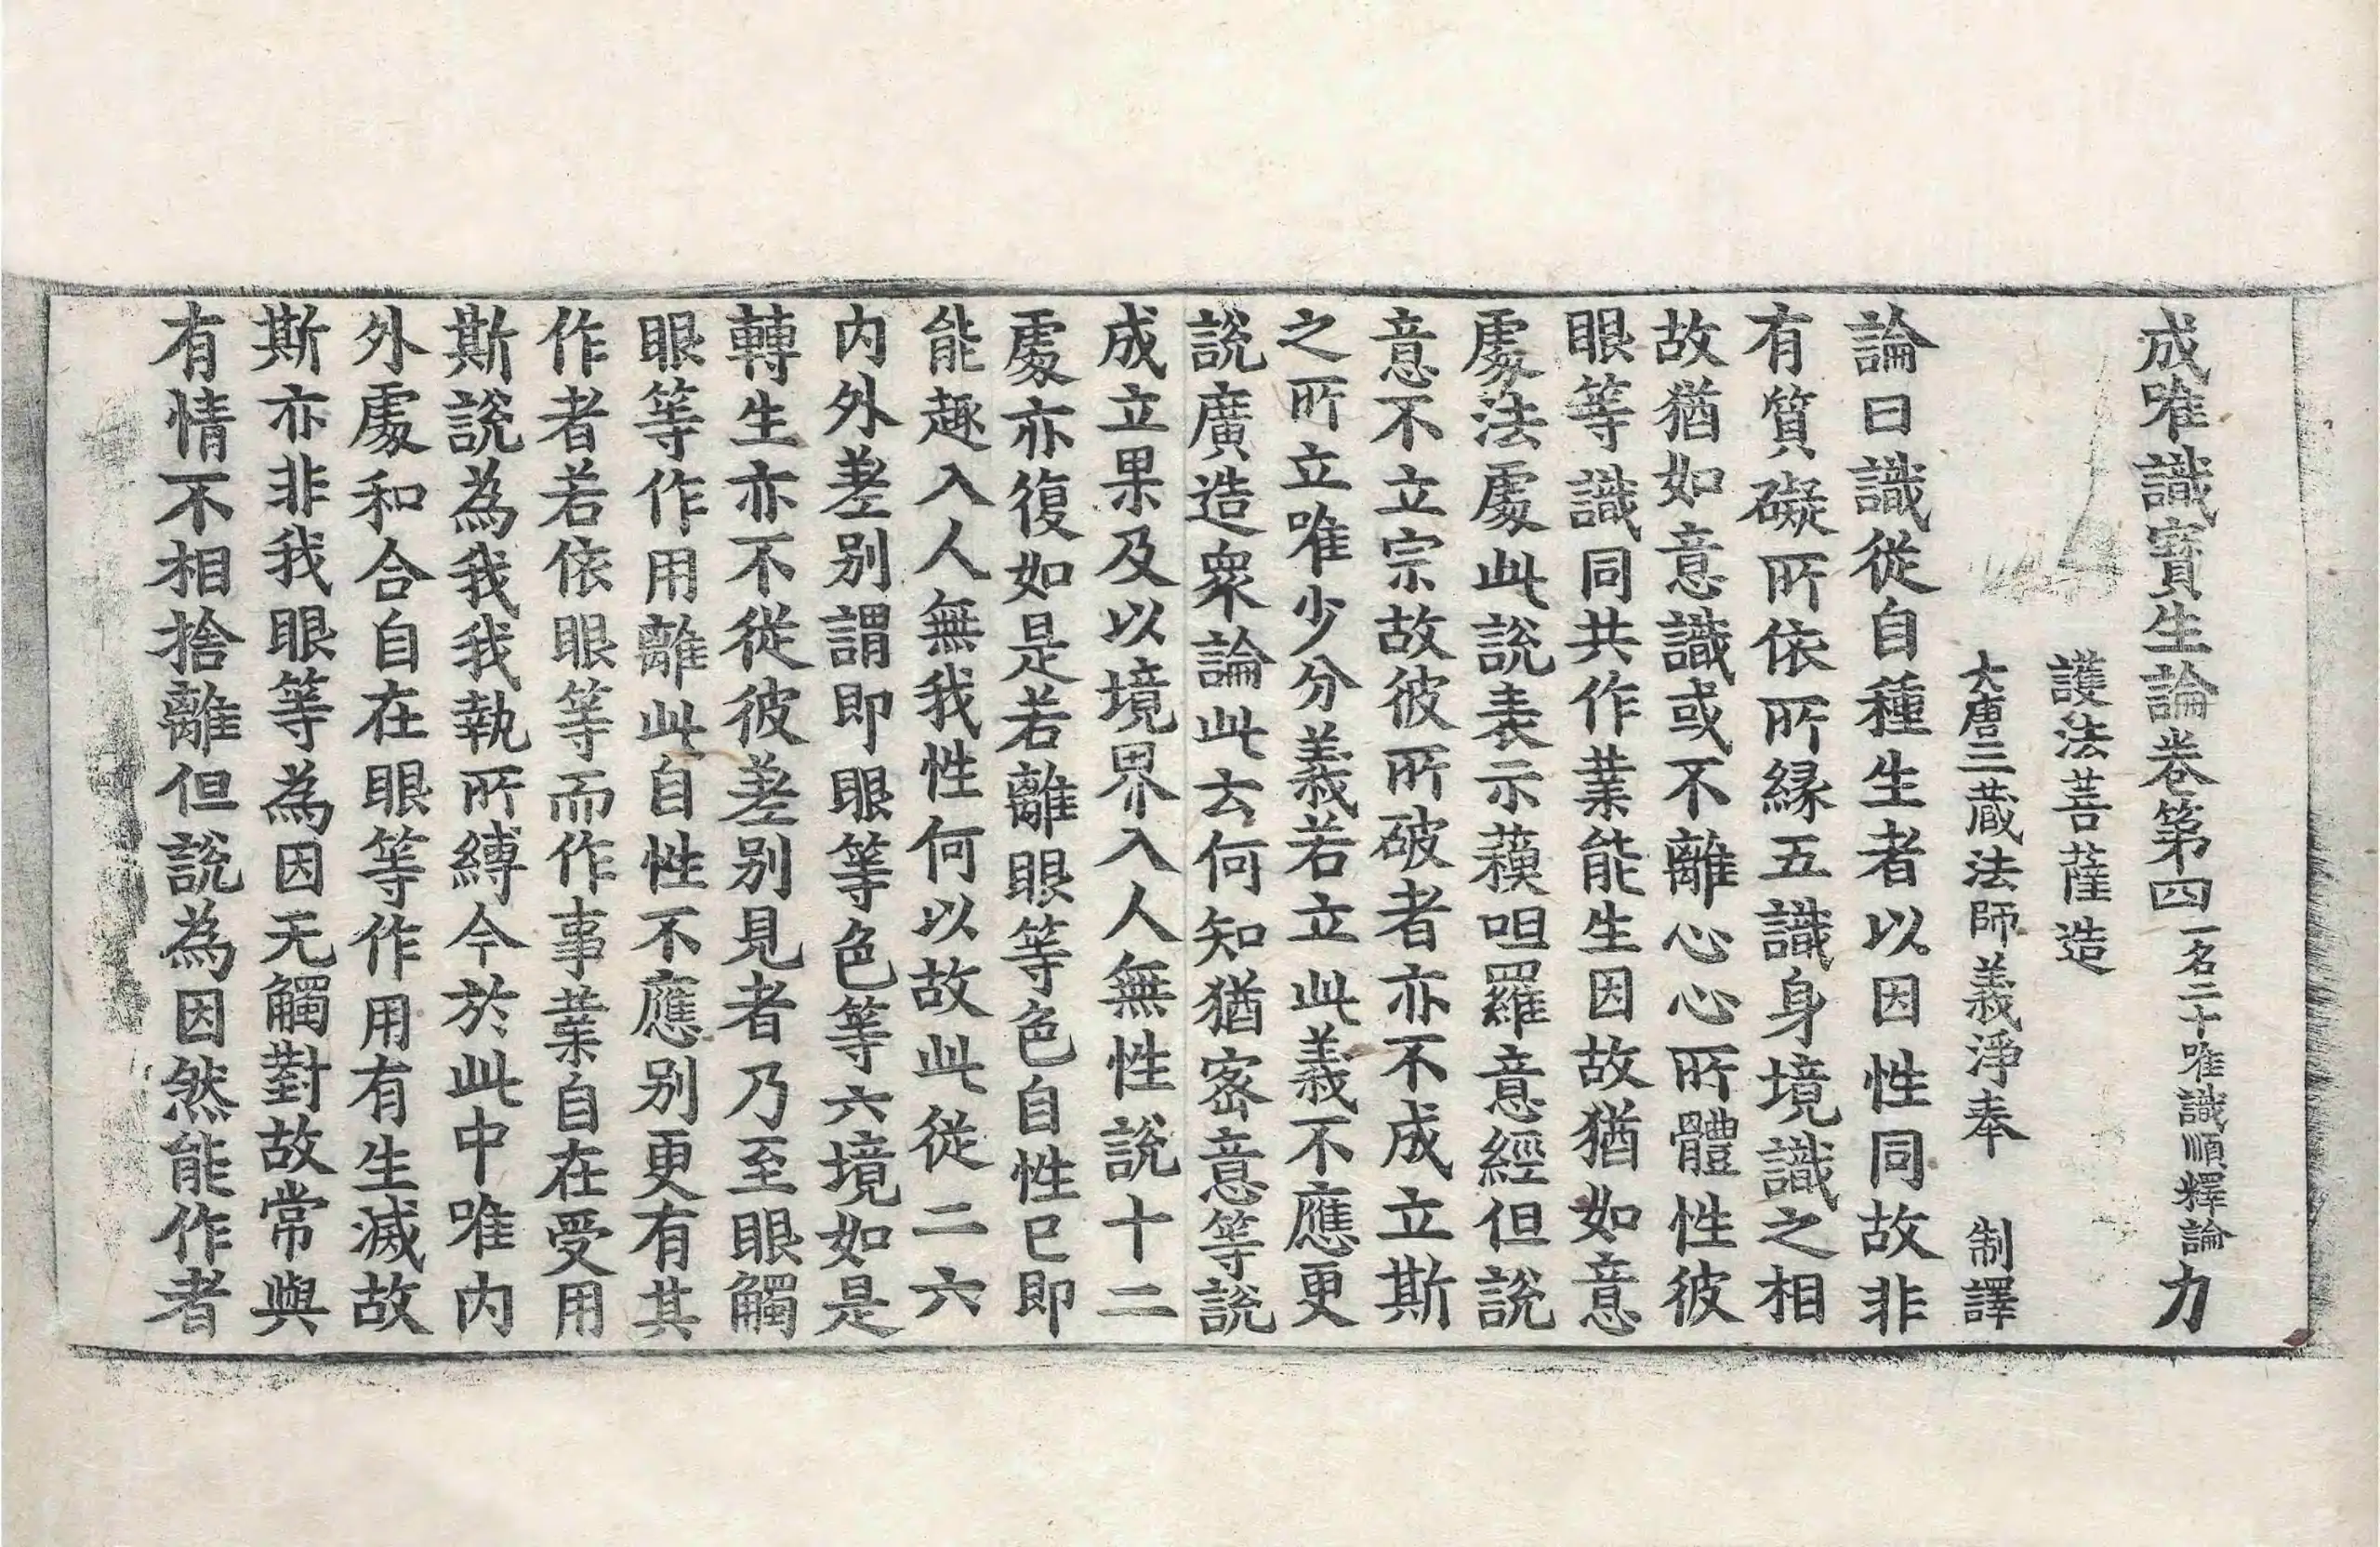 成唯識寶生論卷第四一名二十唯識順釋論 力
護法菩薩造
大唐三藏法師義淨奉 制譯
論曰識從自種生者以因性同故非
有質礙所依所縁五識身境識之相
故猶如意識或不離心心所體性彼
眼等識同共作業能生因故猶如意
處法處此說表示蘓呾羅意經但說
意不立宗故彼所破者亦不成立斯
之所立唯少分義若立此義不應更
說廣造衆論此云何知猶密意等說
成立果及以境界入人無性說十二
處亦復如是若離眼等色自性已即
能趣入人無我性何以故此從二六
内外差别謂即眼等色等六境如是
轉生亦不從彼差别見者乃至眼觸
眼等作用離此自性不應别更有其
作者若依眼等而作事業自在受用
斯說為我我執所縛今於此中唯内
外處和合自在眼等作用有生滅故
斯亦非我眼等為因无觸對故常與
有情不相捨離但說為因然能作者